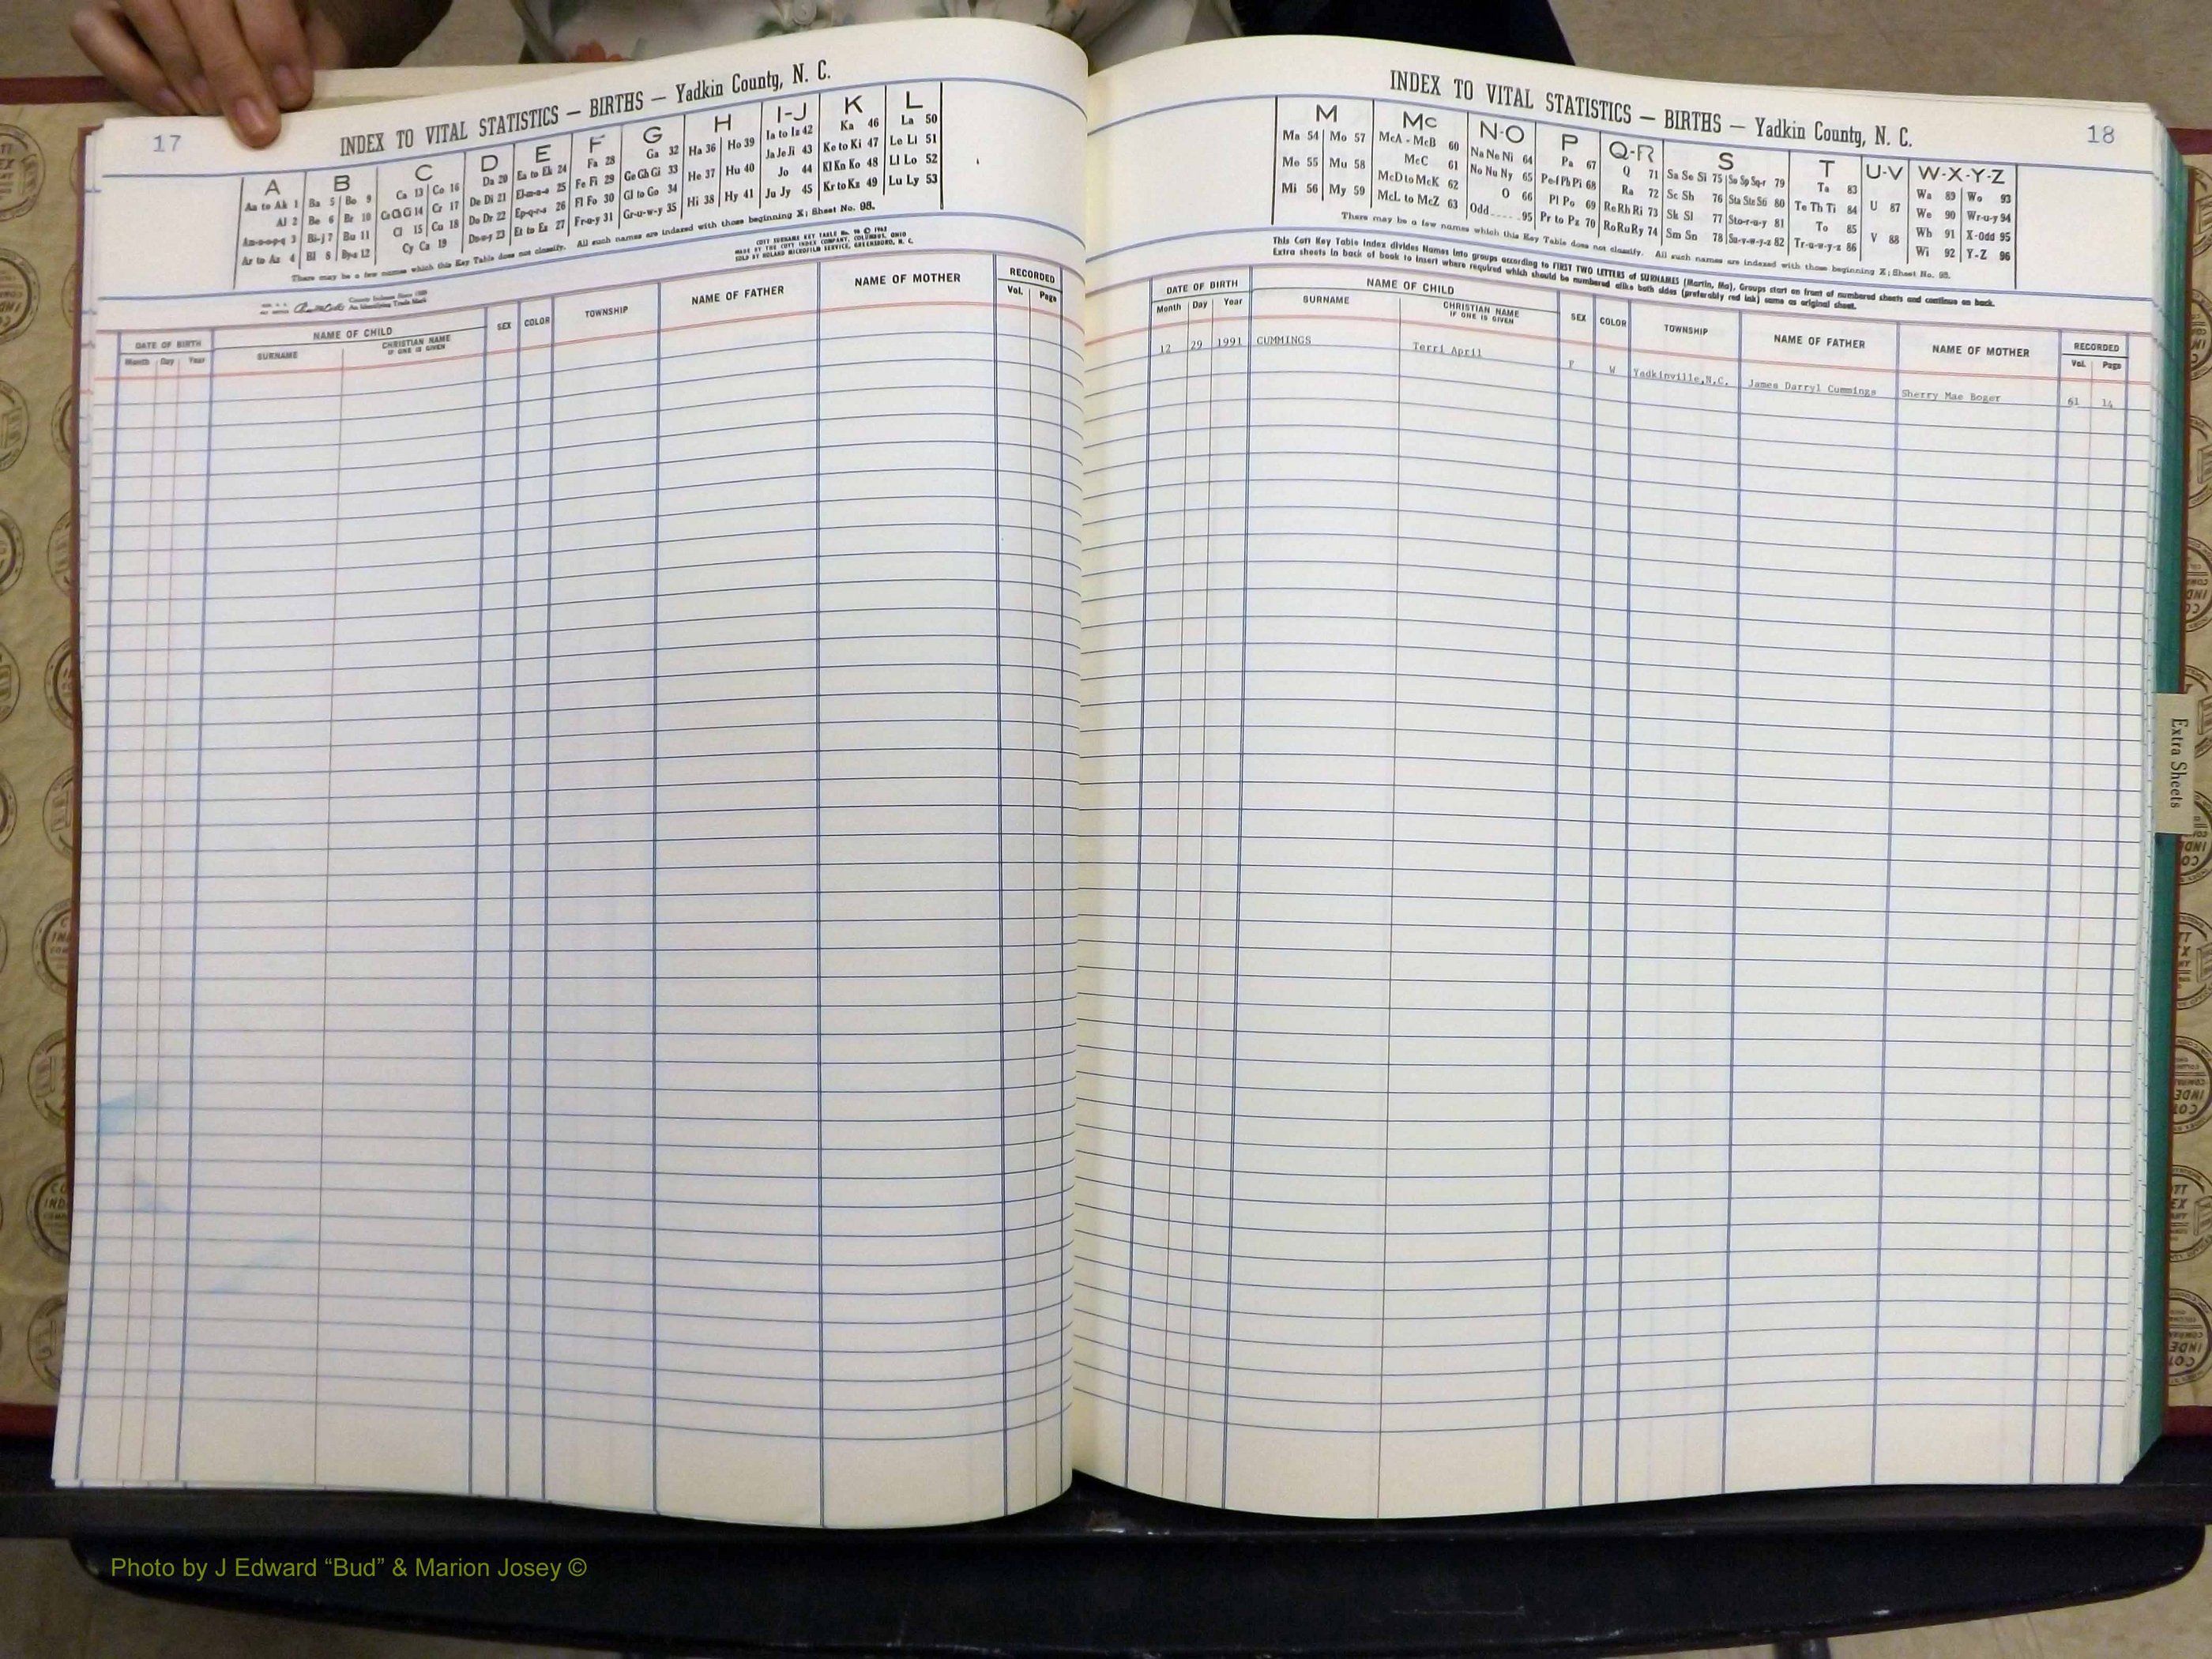 17
INDEX TO VITAL STATISTICS — BIRTHS — Yadkin County, N. C.
A B C D E F G H I-J K L
Aa to Ak 1 Ba 5 Bo 9 Ca 13 Co 16 Da 20 Ea to Ek 24 Fa 28 Ga 32 Ha 36 Ho 39 Ia to Iz 42 Ka 46 La 50
Al 2 Be 6 Br 10 Ce Ch Ci 14 Cr 17 De Di 21 El-m-n-o 25 Fe Fi 29 Ge Gh Gi 33 He 37 Hu 40 Ja Je Ji 43 Ke to Ki 47 Le Li 51
An-o-p-q 3 Bi-j 7 Bu 11 Cl 15 Cu 18 Do Dr 22 Ep-q-r-s 26 Fl Fo 30 Gl to Go 34 Hi 38 Hy 41 Jo 44 Kl Kn Ko 48 Ll Lo 52
Ar to Az 4 Bl 8 By-z 12 Cy Cz 19 Du-w-y 23 Et to Ez 27 Fr-u-y 31 Gr-u-w-y 35 Ju Jy 45 Kr to Kz 49 Lu Ly 53
There may be a few names which this Key Table does not classify. All such names are indexed with those beginning X; Sheet No. 98.
COTT SURNAME KEY TABLE No. 98 © 1962
MADE BY THE COTT INDEX COMPANY, COLUMBUS, OHIO
SOLD BY ROLAND MICROFILM SERVICE, GREENSBORO, N. C.
County Indexes Since 1888
An Identifying Trade Mark
DATE OF BIRTH NAME OF CHILD SEX COLOR TOWNSHIP NAME OF FATHER NAME OF MOTHER RECORDED
Month Day Year SURNAME CHRISTIAN NAME IF ONE IS GIVEN Vol. Page
18
INDEX TO VITAL STATISTICS — BIRTHS — Yadkin County, N. C.
M Mc N-O P Q-R S T U-V W-X-Y-Z
Ma 54 Mo 57 McA - McB 60 Na Ne Ni 64 Pa 67 Q 71 Sa Se Si 75 So Sp Sq-r 79 Ta 83 U 87 Wa 89 Wo 93
Me 55 Mu 58 McC 61 No Nu Ny 65 Pe-f Ph Pi 68 Ra 72 Sc Sh 76 Sta Ste Sti 80 Te Th Ti 84 V 88 We 90 Wr-u-y 94
Mi 56 My 59 McD to McK 62 O 66 Pl Po 69 Re Rh Ri 73 Sk Sl 77 Sto-r-u-y 81 To 85 Wh 91 X-Odd 95
McL to McZ 63 Odd.....95 Pr to Pz 70 Ro Ru Ry 74 Sm Sn 78 Su-v-w-y-z 82 Tr-u-w-y-z 86 Wi 92 Y-Z 96
There may be a few names which this Key Table does not classify. All such names are indexed with those beginning X; Sheet No. 98.
This Cott Key Table Index divides Names into groups according to FIRST TWO LETTERS of SURNAMES (Martin, Ma). Groups start on front of numbered sheets and continue on back.
Extra sheets in back of book to insert where required which should be numbered alike both sides (preferably red ink) same as original sheet.
DATE OF BIRTH NAME OF CHILD SEX COLOR TOWNSHIP NAME OF FATHER NAME OF MOTHER RECORDED
Month Day Year SURNAME CHRISTIAN NAME IF ONE IS GIVEN Vol. Page
12 29 1991 CUMMINGS Terri April F W Yadkinville,N.C. James Darryl Cummings Sherry Mae Boger 61 14
Extra Sheets
Photo by J Edward “Bud” & Marion Josey ©